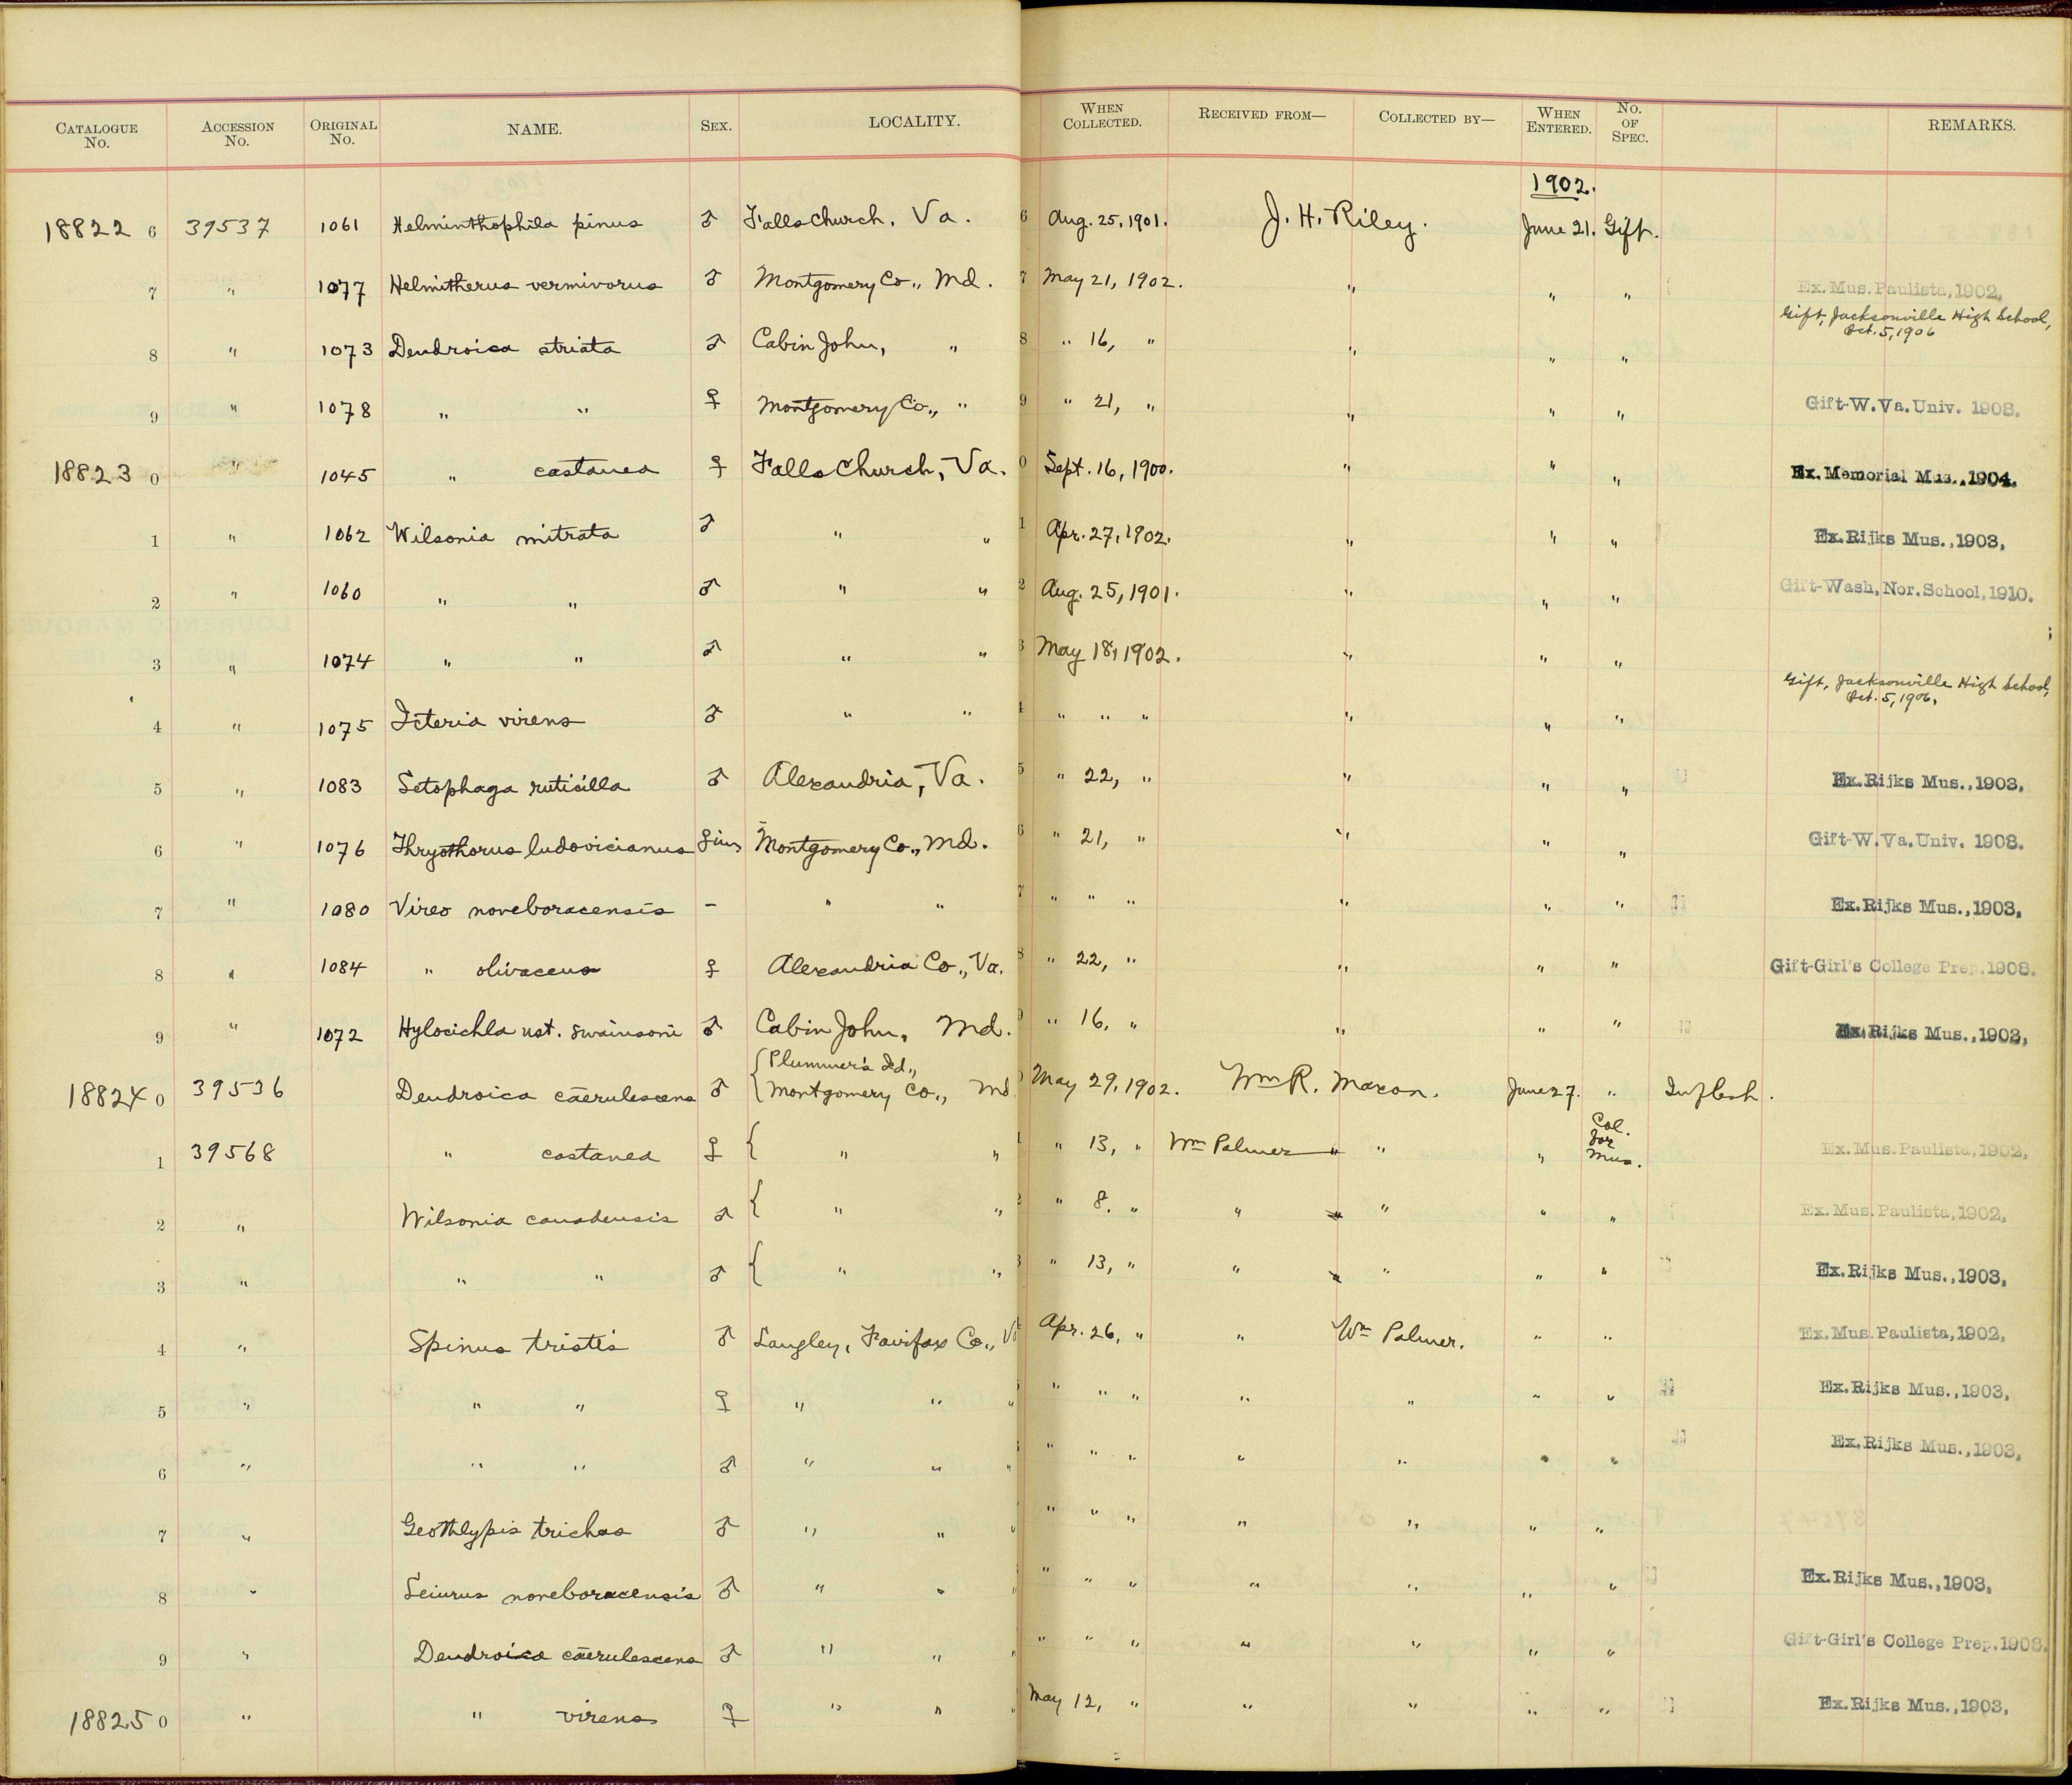 CATALOGUE No. ACCESSION No. ORIGINAL No. NAME. SEX. LOCALITY. WHEN COLLECTED. RECEIVED FROM— COLLECTED BY— WHEN ENTERED. No. OF SPEC. REMARKS.
1902.
18822 6 39537 1061 Helminthophila pinus ♂ Falls Church, Va. 6 Aug. 25, 1901. J. H. Riley. June 21. Gift.
7 " 1077 Helmitherus vermivorus ♂ Montgomery Co., Md. 7 May 21, 1902. " " " Ex. Mus. Paulista, 1902.
8 " 1073 Dendroica striata ♂ Cabin John, " 8 " 16, " " " " Gift, Jacksonville High School, Oct. 5, 1906
9 " 1078 " " ♀ Montgomery Co., " 9 " 21, " " " " Gift-W. Va. Univ. 1908.
18823 0 " 1045 " castanea ♀ Falls Church, Va. 0 Sept. 16, 1900. " " " Ex. Memorial Mus., 1904.
1 " 1062 Wilsonia mitrata ♂ " " 1 Apr. 27, 1902. " " " Ex. Rijks Mus., 1903.
2 " 1060 " " ♂ " " 2 Aug. 25, 1901. " " " Gift-Wash. Nor. School, 1910.
3 " 1074 " " ♂ " " 3 May 18, 1902. " " "
4 " 1075 Icteria virens ♂ " " 4 " " " " " " Gift, Jacksonville High School, Oct. 5, 1906.
5 " 1083 Setophaga ruticilla ♂ Alexandria, Va. 5 " 22, " " " " Ex. Rijks Mus., 1903.
6 " 1076 Thryothorus ludovicianus Montgomery Co., Md. 6 " 21, " " " " Gift-W. Va. Univ. 1908.
7 " 1080 Vireo noveboracensis - " " 7 " " " " " " Ex. Rijks Mus., 1903.
8 " 1084 " olivaceus ♀ Alexandria Co., Va. 8 " 22, " " " " Gift-Girl's College Prep. 1908.
9 " 1072 Hylocichla ust. swainsoni ♂ Cabin John, Md. 9 " 16, " " " " Ex. Rijks Mus., 1903.
18824 0 39536 Dendroica cærulescens ♂ { Plummer's Id., Montgomery Co., Md. 0 May 29, 1902. Wm R. Maxon. June 27. " In flesh.
1 39568 " castanea ♀ { " " 1 " 13, " Wm Palmer " " " Col. for Mus. Ex. Mus. Paulista, 1902.
2 " Wilsonia canadensis ♂ { " " 2 " 8, " " " " " Ex. Mus. Paulista, 1902.
3 " " " ♂ { " " 3 " 13, " " " " " Ex. Rijks Mus., 1903.
4 " Spinus tristis ♂ Langley, Fairfax Co., Va Apr. 26, " " Wm Palmer. " " Ex. Mus. Paulista, 1902.
5 " " " ♀ " " " " " " " " " " Ex. Rijks Mus., 1903.
6 " " " ♂ " " " " " " " " " " Ex. Rijks Mus., 1903.
7 " Geothlypis trichas ♂ " " " " " " " " " "
8 " Seiurus noveboracensis ♂ " " " " " " " " " " Ex. Rijks Mus., 1903.
9 " Dendroica cærulescens ♂ " " " " " " " " " " Gift-Girl's College Prep. 1908.
18825 0 " " virens ♀ " " " May 12, " " " " " Ex. Rijks Mus., 1903.